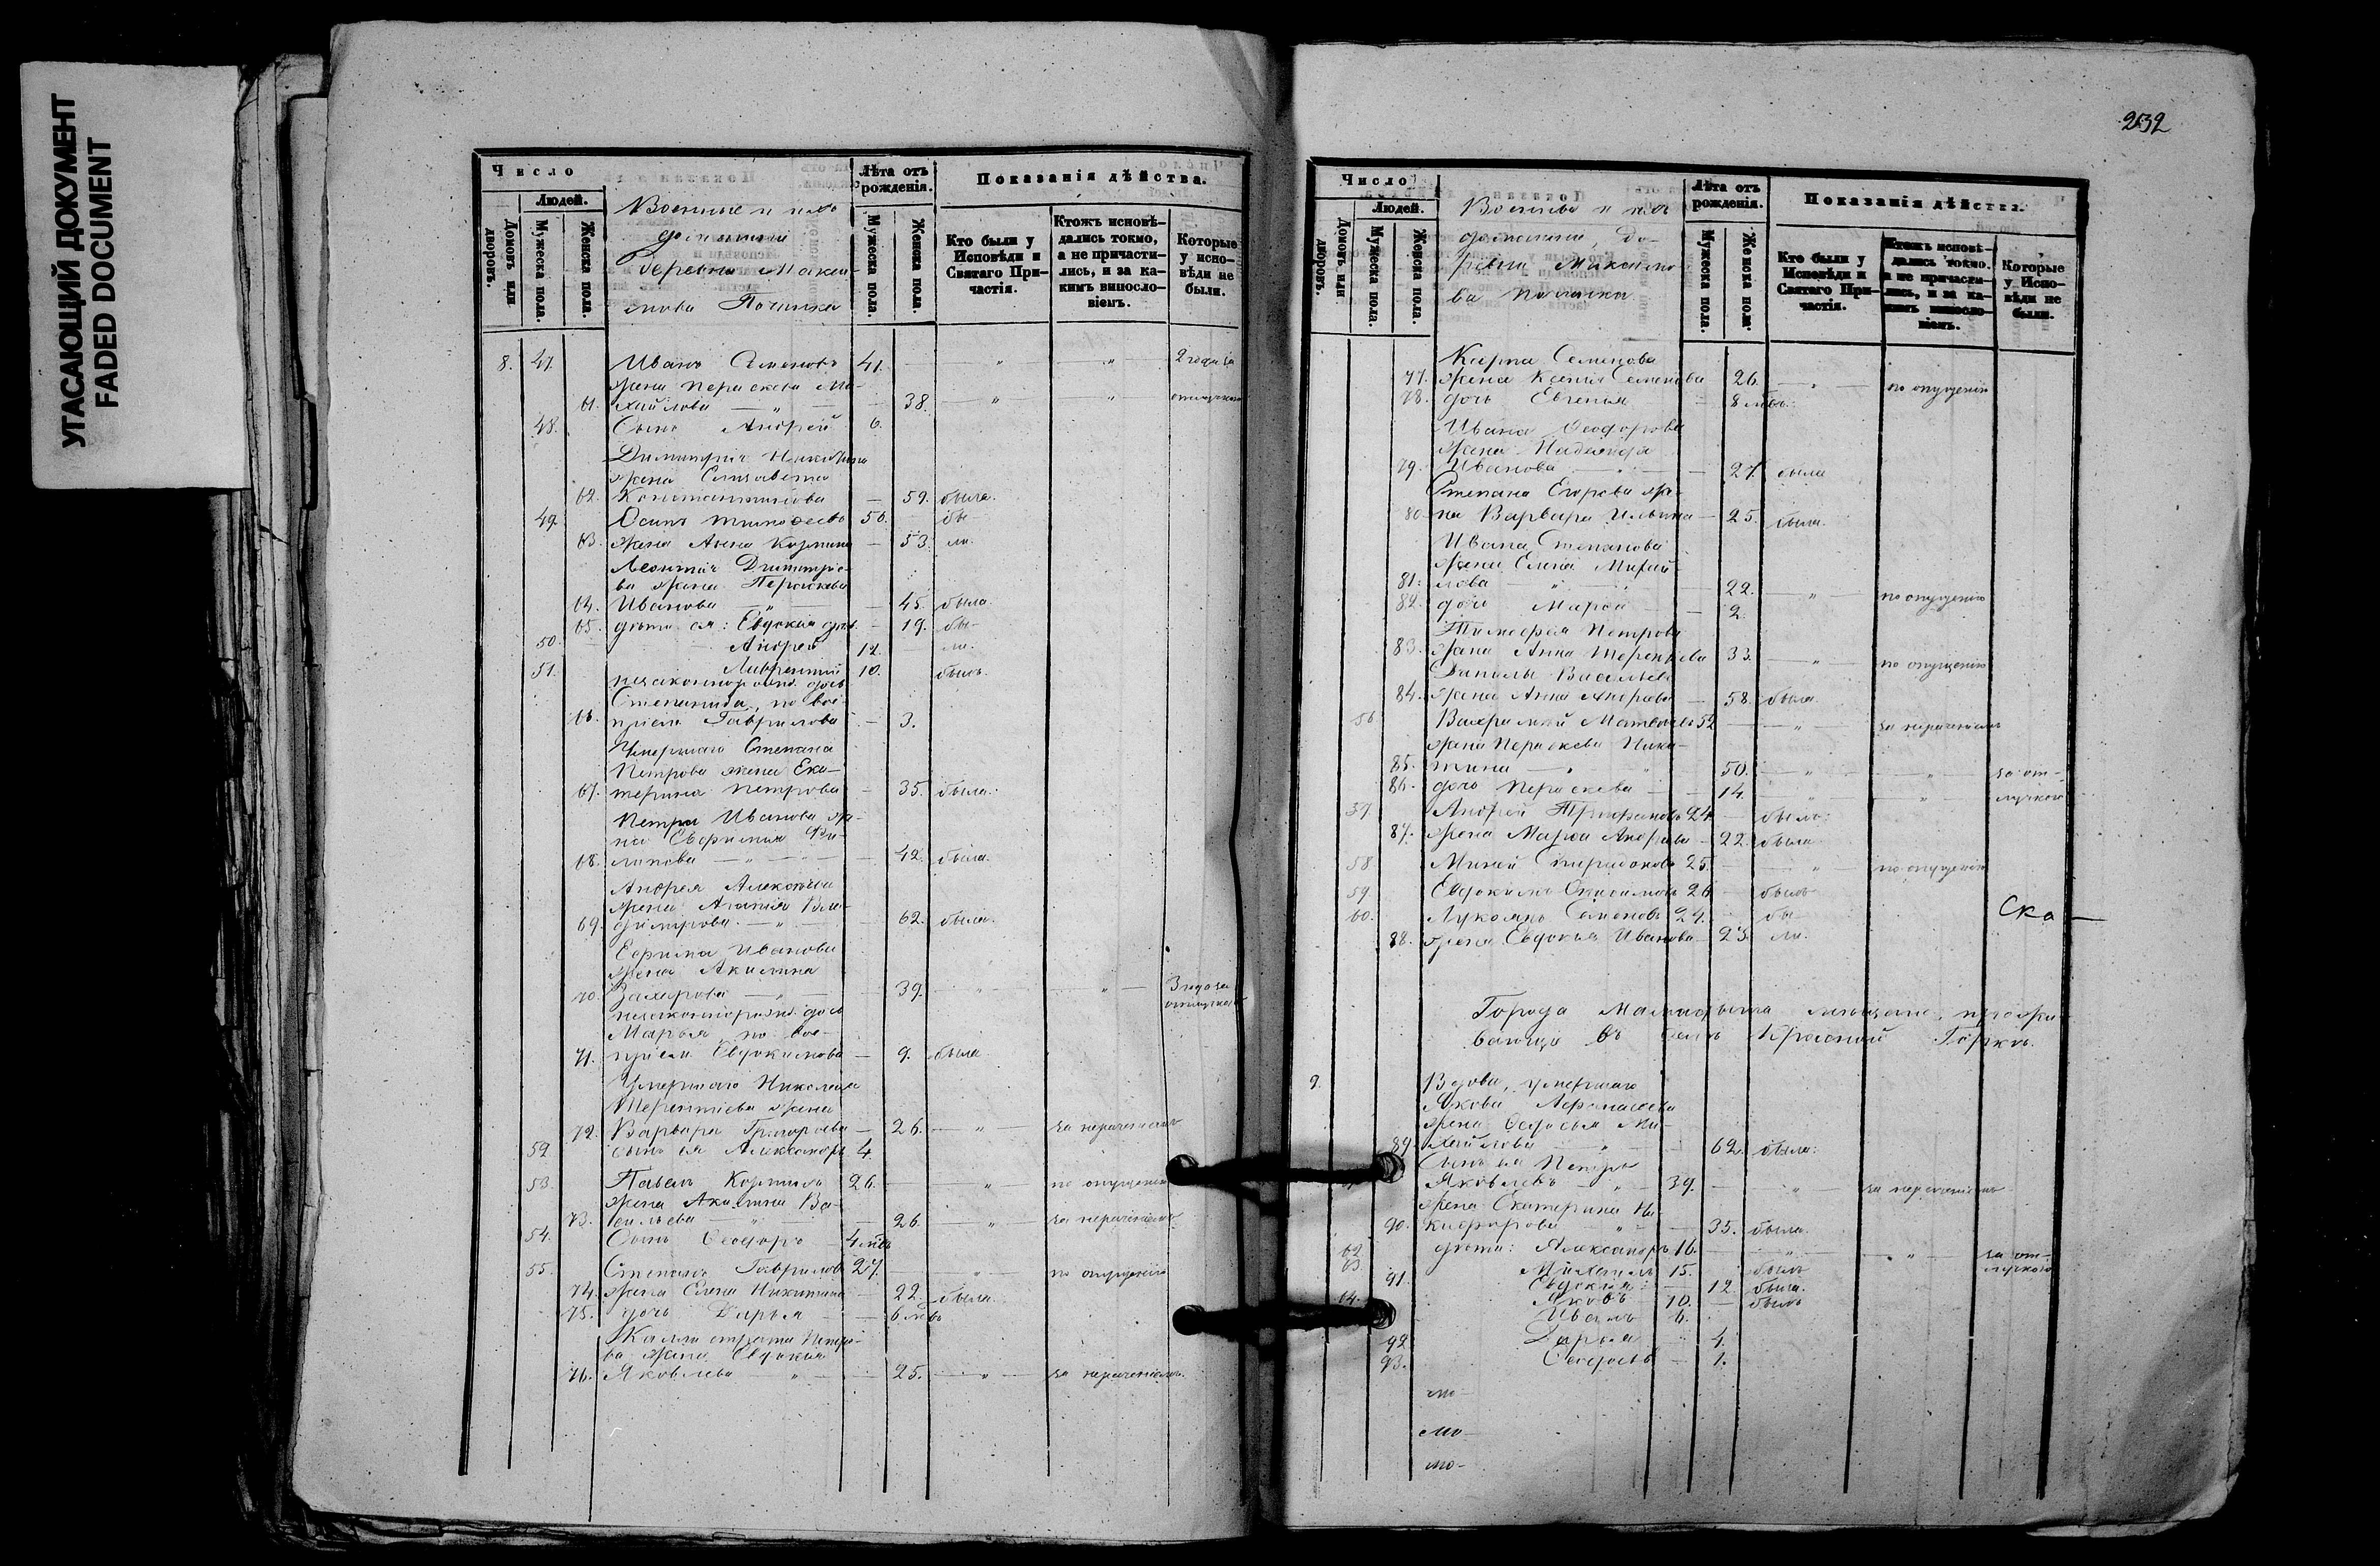 УГАСАЮЩИЙ ДОКУМЕНТ
FADED DOCUMENT
Число
Людей.
Домовъ или дворовъ.
Мужеска пола.
Женска пола.
Военные и ихъ
домашніе
Деревни Макси-
мова Починка
Лѣта отъ рожденія.
Мужеска пола.
Женска пола.
Показанія дѣйства.
Кто были у Исповѣди и Святаго При-частія.
Ктожъ исповѣ-дались токмо, а не причасти-лись, и за ка-кимъ винословіемъ.
Которые у испо-вѣди не были.
8. 47. Иванъ Семеновъ 41. — „ — „ — 2 года за
жена Параскева Ми-
61. хайлова — „ — 38. — „ „ отлучкою
48. Сынъ Андрей 6.
Димитрія Никитина
жена Елисавета
62. Константинова — 59. была.
49. Осипъ Тимофеевъ 56. бы
63. жена Анна Козмина — 53. ли.
Леонтія Димитріе-
ва жена Параскева
64. Иванова — „ — 45. была.
65. дѣти ея: Евдокія — 19. бы-
50. Андрей 12. ли.
51. Лаврентій 10. былъ.
незаконнорожд. дочь
Степанида, по вос-
66. пріем. Гаврилова — 3.
Умершаго Степана
Петрова жена Ека-
67. терина Петрова — 35. была.
Петра Иванова же-
на Евфимія Фи-
68. липова — „ — 42. была.
Андрея Алексѣева
жена Агафія Вла-
69. димирова. — „ — 62. была.
Ефима Иванова
жена Акилина
70. Захарова — „ — 39. — „ — „ — 3 года за
отлучкою
незаконнорожд. дочь
Марья по вос-
71. пріем. Евдокимова — 9. была
Умершаго Николая
Терентіева жена
72. Варвара Григорьева — 26. — „ — за нераченіемъ
52 сынъ ея Александръ 4.
53. Павелъ Козминъ 26. — „ — по опущенію
жена Акилина Ва-
73. сильева — „ — 26. — „ — за нераченіемъ
54. Сынъ Ѳеодоръ — 4 мѣс.
55. Степанъ Гавриловъ 27. — „ — по опущенію
74. жена Елена Никитина — 22. была.
75. дочь Дарья — 6 мѣс.
Каллистрата Петро-
ва жена Евдокія
76. Яковлева — „ — 25. — „ — за нераченіемъ.
232
Число
Людей.
Домовъ или дворовъ.
Мужеска пола.
Женска пола.
Военные и ихъ
домашніе, Де-
ревни Максимо-
ва Починка
Лѣта отъ рожденія.
Мужеска пола.
Женска пола.
Показанія дѣйства.
Кто были у Исповѣди и Святаго При-частія.
Ктожъ исповѣ-дались токмо, и не причасти-лись, и за ка-кимъ винословіемъ.
Которые у Испо-вѣди не были.
Карпа Семенова
77. жена Ксенія Семенова 26. — „ — по опущенію
78. дочь Евгенія — 8 мѣс.
Ивана Ѳеодорова
жена Надежда
79. Иванова — „ — 27. была
Степана Егорова же-
80. на Варвара Ильина — 25. была.
Ивана Степанова
жена Елена Михай-
81. лова — „ — 22. — „ — по опущенію
82. дочь Марѳа — 2.
Тимоѳея Петрова
83. жена Анна Терентьева 33. — „ — по опущенію
Данилы Васильева
84. жена Анна Андреева — 58. была.
56. Матвѣевъ 52 — „ — за нераченіемъ
жена Параскева Ники-
85. тина — „ 50. — „ — „ — за от-
86. дочь Параскева — 14. „ „ лучкою
57. Андрей Трифоновъ 24. — былъ.
87. жена Марѳа Андреева — 22. была.
58 Миней Спиридоновъ 25. — „ — по опущенію
59 Евдокимъ 26 — былъ
60. Лукьянъ Семеновъ 24. — бы-
88. жена Евдокія Иванова — 23. ли.
Ска—
Города Малмыжа мѣщане, прожи-
вающіе въ селѣ Красной Горкѣ.
9. Вдова, умершаго
Якова Аѳанасьева
жена Ѳедосья Ми-
89. хайлова — „ — 62. была.
Сынъ ея Петръ
Яковлевъ — „ — 39. — „ — за нераченіемъ
жена Екатерина Ни-
90. кифорова — „ — 35. была.
62 дѣти: Александръ 16. — „ — „ — за от-
лучкою
63 Михаилъ 15. былъ
91. Евдокія: — 12. была.
64. Яковъ — 10. — былъ
Иванъ 6.
92 Дарья — 4.
93. — 1.
то-
мо-
то-